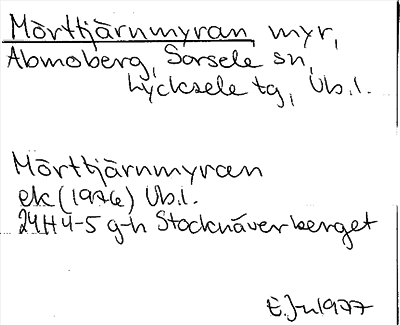 Mörttjärnmyran, myr,
Abmoberg, Sorsele sn,
Lycksele tg, Vb.l.
Mörttjärnmyran
ek (1976) Vb.l.
24H 4-5 g-h Stocknäverberget
E.Jn 1977